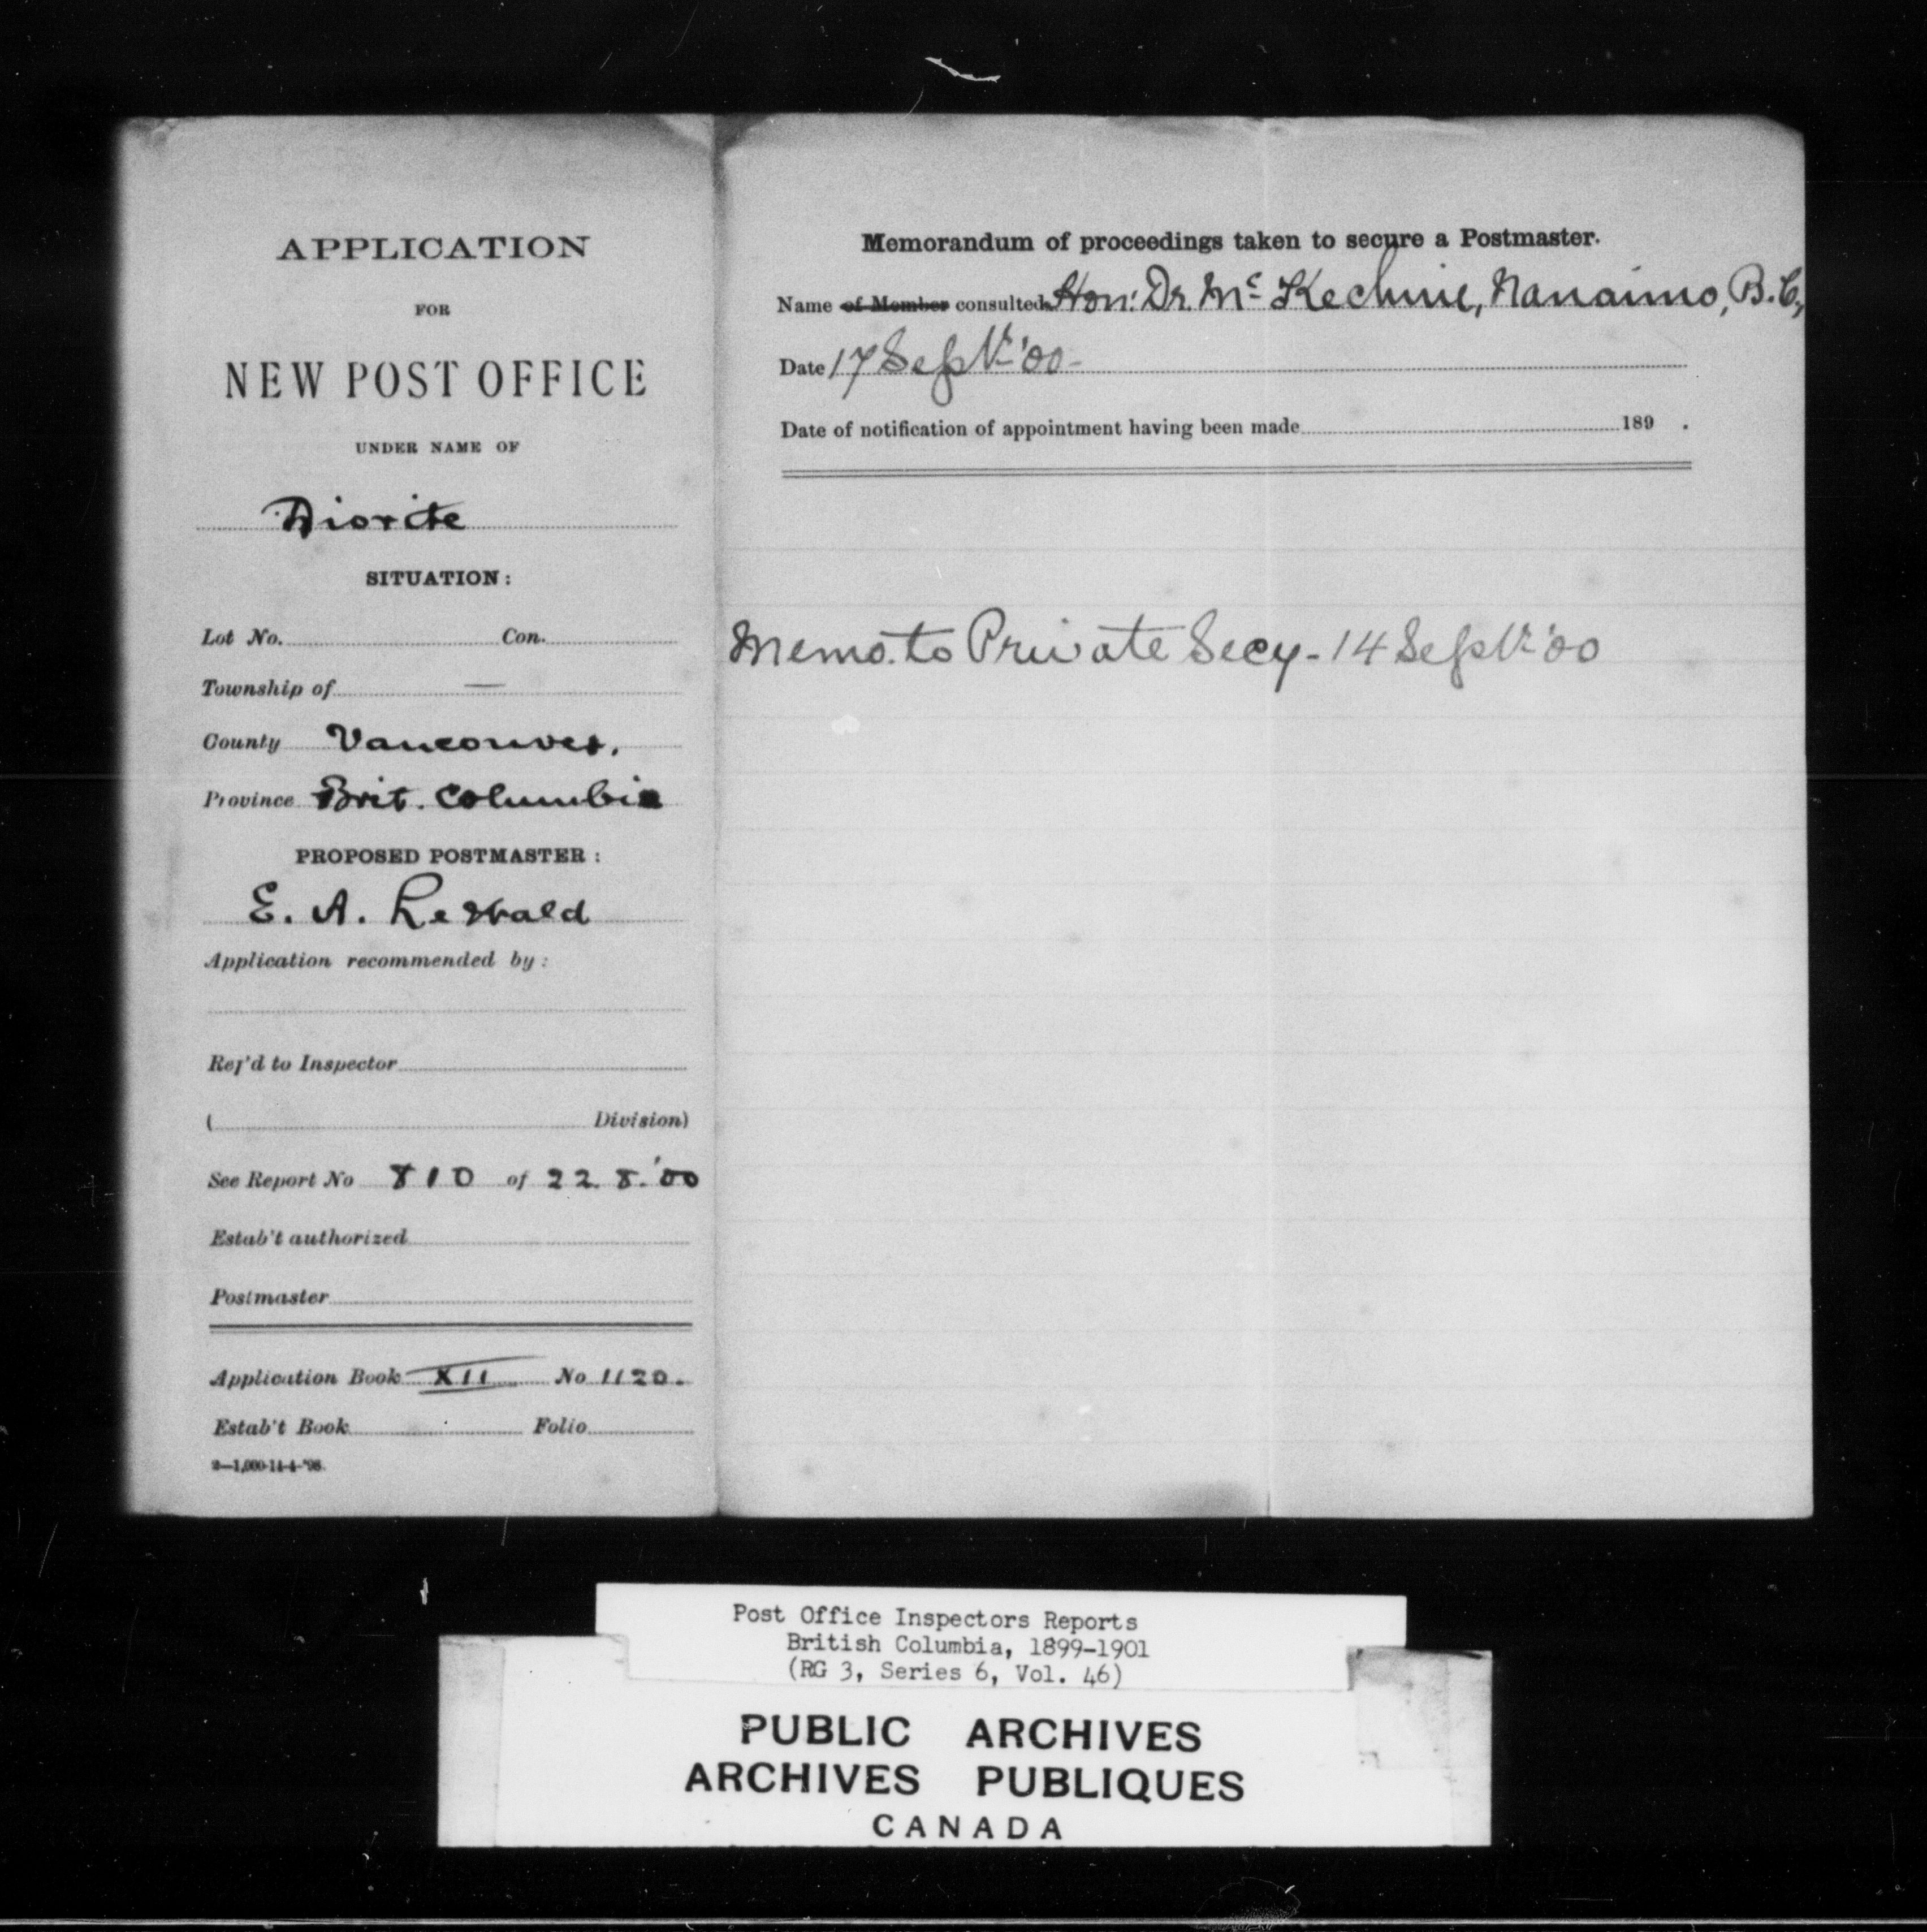 APPLICATION
FOR
NEW POST OFFICE
UNDER NAME OF
Diorite
SITUATION:
Lot No. Con.
Township of —
County Vancouver.
Province Brit. Columbia
PROPOSED POSTMASTER:
E. A. LeWald
Application recommended by:
Ref'd to Inspector
( Division)
See Report No 810 of 22.8.'00
Estab't authorized
Postmaster
Application Book XII No 1120.
Estab't Book Folio
2—1,000-14-4-'98.
Memorandum of proceedings taken to secure a Postmaster.
Name of Member consulted Hon: Dr. McKechnie, Nanaimo, B.C.,
Date 17 Sept. '00-
Date of notification of appointment having been made 189 .
Memo. to Private Secy - 14 Sept. '00
Post Office Inspectors Reports
British Columbia, 1899-1901
(RG 3, Series 6, Vol. 46)
PUBLIC ARCHIVES
ARCHIVES PUBLIQUES
CANADA